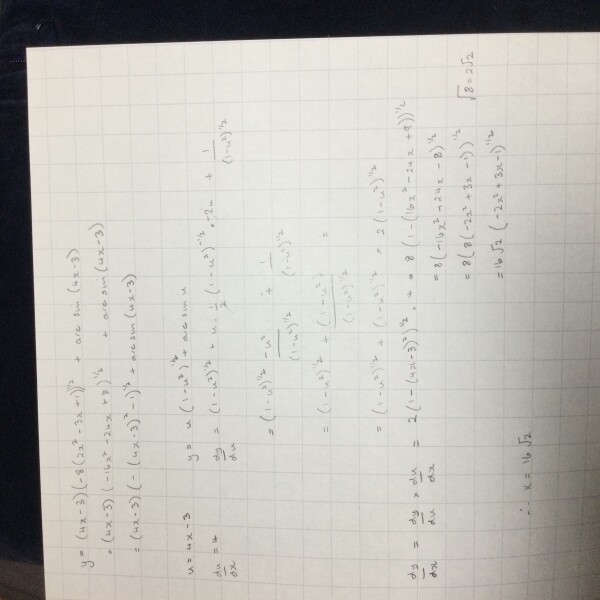 y = (4x-3)(-8(2x²-3x+1))^{1/2} + arc sin (4x-3)
= (4x-3)(-16x²-24x+8)^{1/2} + arc sin (4x-3)
= (4x-3)(-(4x-3)²-1)^{1/2} + arc sin (4x-3)
u = 4x-3 y = u(1-u²)^{1/2} + arc sin u
du/dx = 4 dy/du = (1-u²)^{1/2} + u · 1/2 (1-u²)^{-1/2} · -2u + 1/(1-u²)^{1/2}
= (1-u²)^{1/2} - u²/(1-u²)^{1/2} + 1/(1-u²)^{1/2}
= (1-u²)^{1/2} + (1-u²)/(1-u²)^{1/2} =
= (1-u²)^{1/2} + (1-u²)^{1/2} = 2(1-u²)^{1/2}
dy/dx = dy/du × du/dx = 2(1-(4x-3)²)^{1/2} · 4 = 8(1-(16x²-24x+9))^{1/2}
= 8(-16x²+24x-8)^{1/2}
= 8(8(-2x²+3x-1))^{1/2} √8 = 2√2
= 16√2 (-2x²+3x-1)^{1/2}
∴ x = 16√2